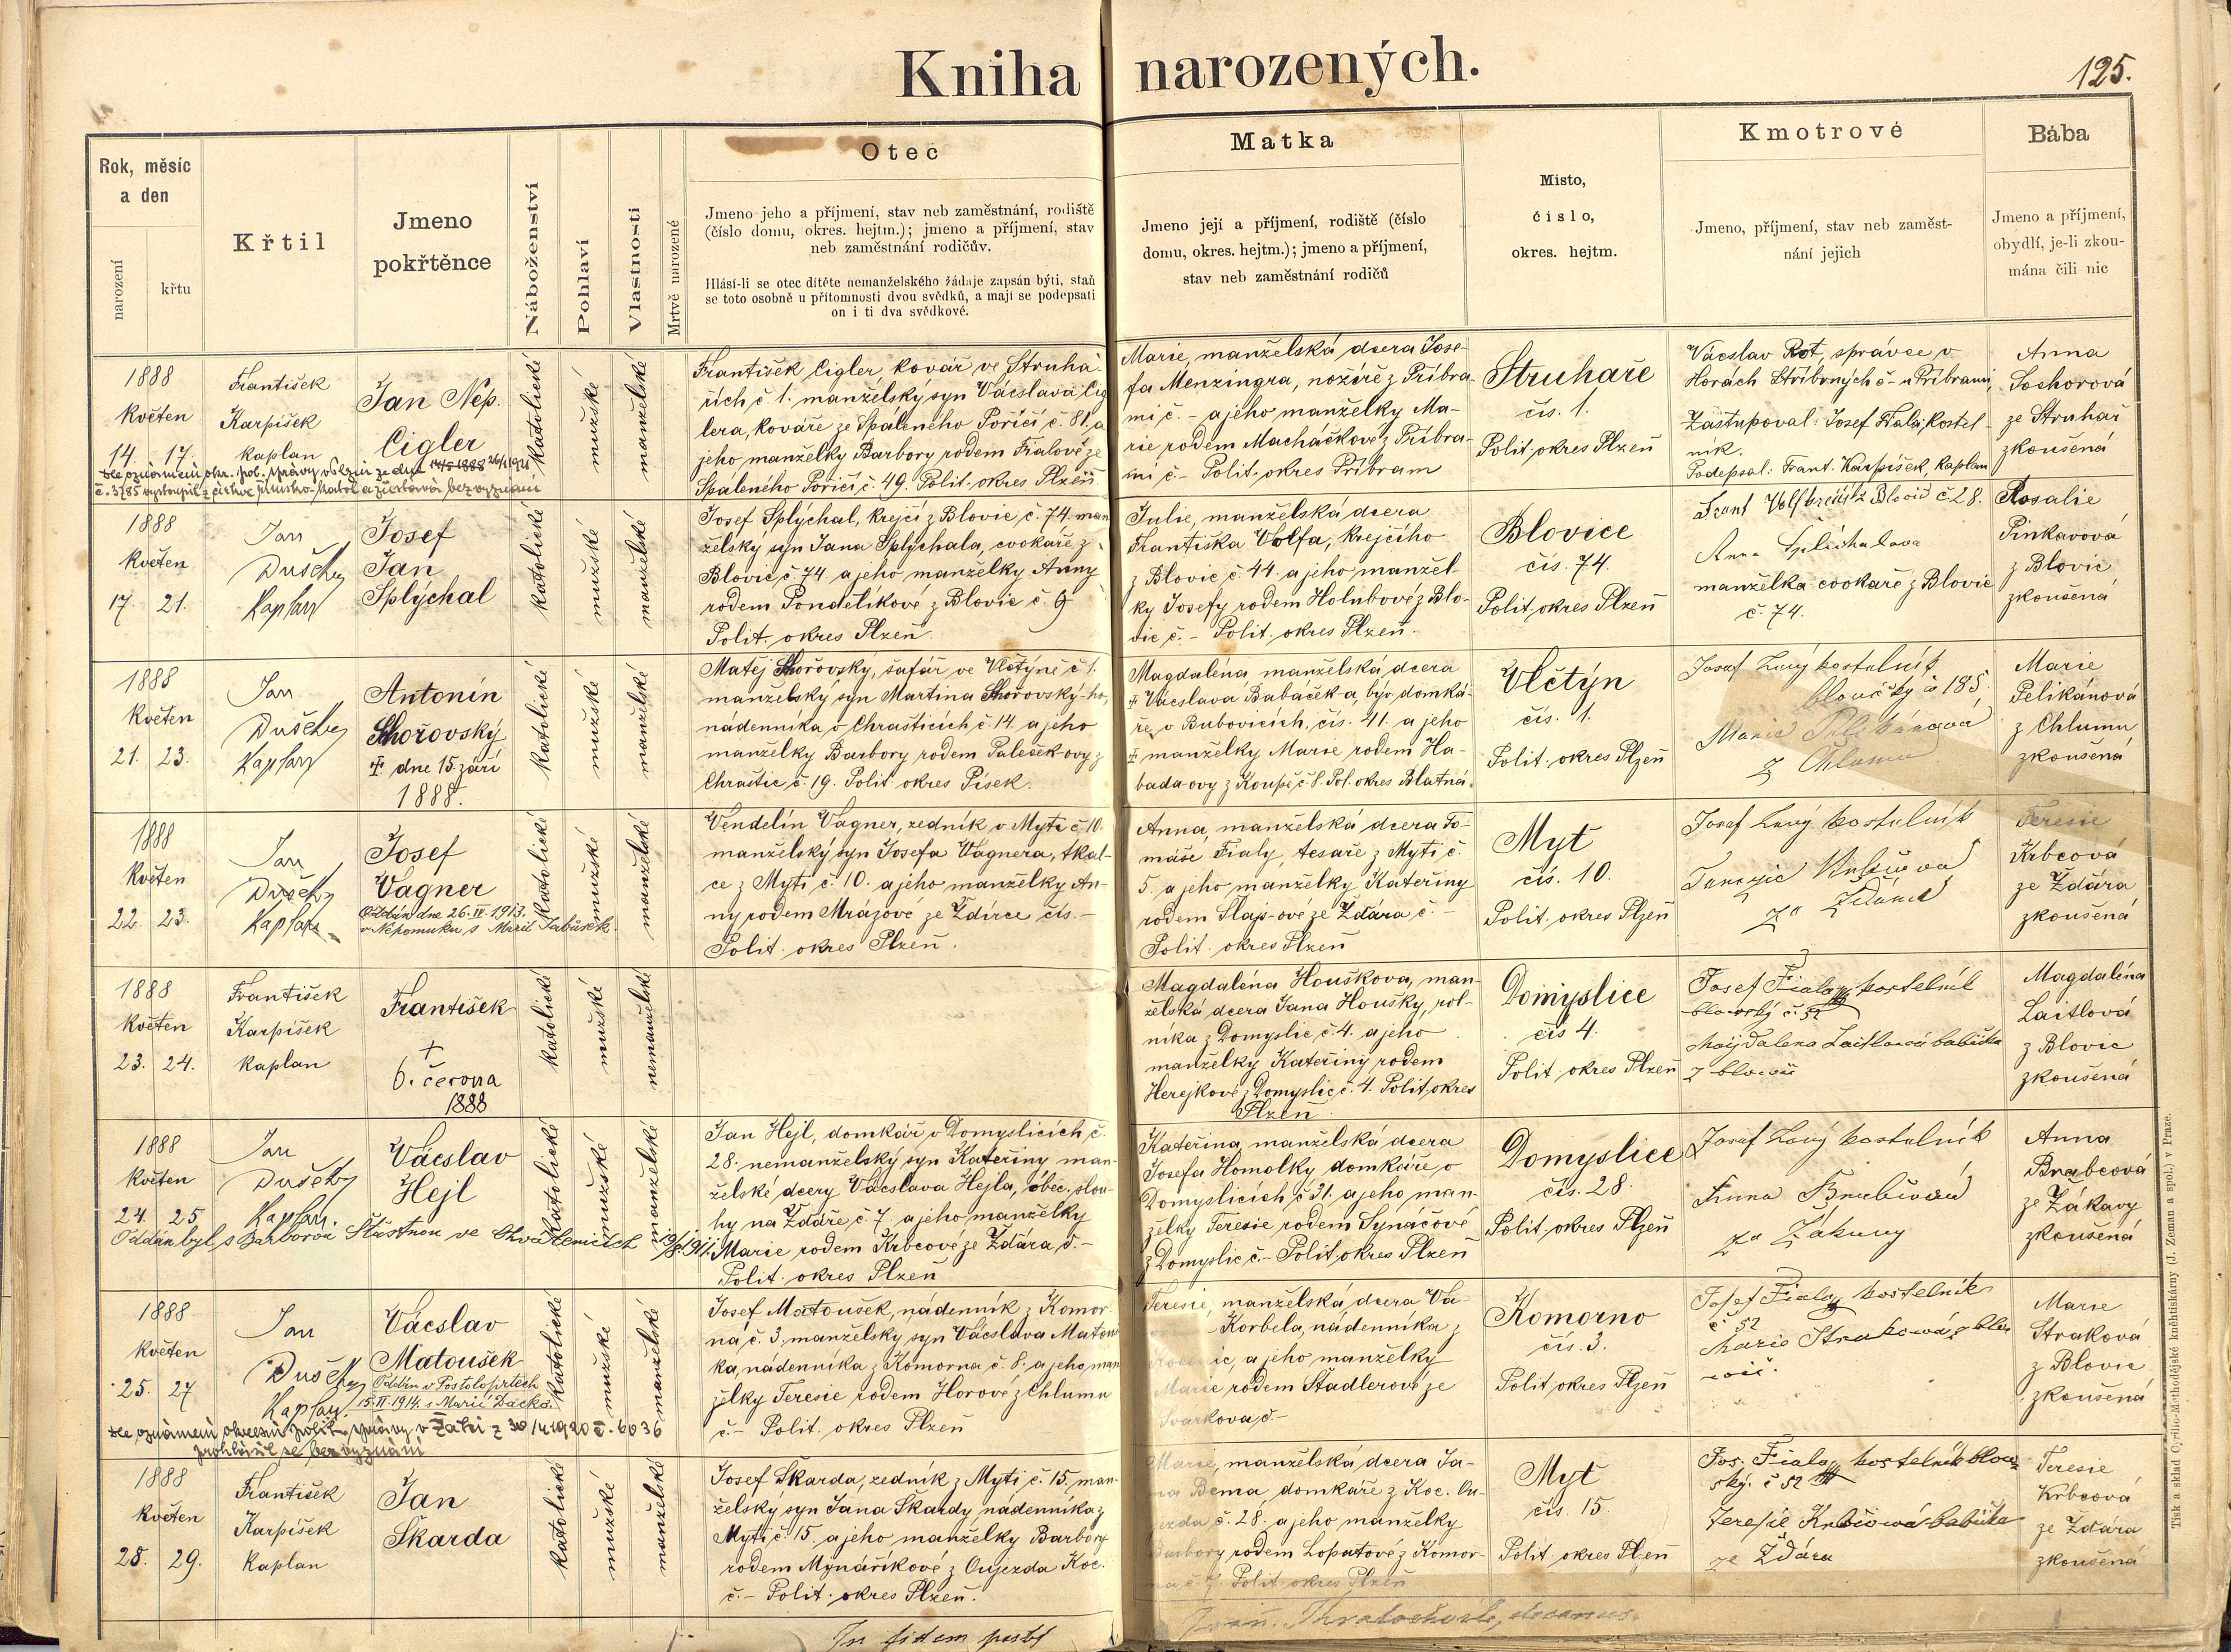 Kniha narozených.
125.
Rok, měsíc
a den
narození
křtu
Křtil
Jmeno
pokřtěnce
Náboženství
Pohlaví
Vlastnosti
Mrtvě narozené
Otec
Jmeno jeho a příjmení, stav neb zaměstnání, rodiště
(číslo domu, okres. hejtm.); jmeno a příjmení, stav
neb zaměstnání rodičův.
Hlásí-li se otec dítěte nemanželského žádaje zapsán býti, staň
se toto osobně u přítomnosti dvou svědků, a mají se podepsati
on i ti dva svědkové.
Matka
Jmeno její a příjmení, rodiště (číslo
domu, okres. hejtm.); jmeno a příjmení,
stav neb zaměstnání rodičů
Místo,
číslo,
okres. hejtm.
Kmotrové
Jmeno, příjmení, stav neb zaměst-
nání jejich
Bába
Jmeno a příjmení,
obydlí, je-li zkou-
mána čili nic
1888
Květen
14. 17.
František
Karpíšek
kaplan
Jan Nep.
Cigler
katolické
mužské
manželské
František Cigler kovář ve Struha-
řích č. 1. manželský syn Vácslava Cig
lera, kováře ze Spáleného Poříčí č. 81. a
jeho manželky Barbory rodem Fialové ze
Spáleného Poříčí č. 49. Polit. okres Plzeň.
Marie, manželská dcera Jose-
fa Menzingra, nožíře z Příbra-
mi č. – a jeho manželky Ma-
rie rodem Macháčkové z Příbra-
mi č. – Polit. okres Příbram
Struhaře
čís. 1.
Polit. okres Plzeň
Vácslav Rot, správce v
Horách Stříbrných č – u Příbrami
Zástupoval: Josef Fiala, kostel-
ník.
Podepsal: Frant. Karpíšek, kaplan
Anna
Sochorová
ze Struhař
zkoušená
1888
Květen
17. 21.
Jan
Dušek
Kaplan
Josef
Jan
Splýchal
katolické
mužské
manželské
Josef Splýchal, krejčí z Blovic č. 74. man
želský syn Jana Splýchala, cvokaře z
Blovic č 74. a jeho manželky Anny
rodem Pondelíkové z Blovic č. 9
Polit. okres Plzeň.
Julie, manželská dcera
Františka Volfa, krejčího
z Blovic č 44. a jeho manžel-
ky Josefy rodem Holubové z Blo-
vic č. – Polit. okres Plzeň.
Blovice
čís. 74.
Polit. okres Plzeň
Anna Splichalova
manželka cvokaře z Blovic
č. 74.
Rosalie
Pinkavová
z Blovic
zkoušená
1888
Květen
21. 23.
Jan
Dušek
Kaplan
Antonín
Shořovský
† dne 15. září
1888.
katolické
mužské
manželské
Matěj Shořovský, šafář ve Vlčtýně č 1.
manželský syn Martina Shořovský-ho,
nádenníka v Chrašticích č 14. a jeho
manželky Barbory rodem Paleček-ovy z
Chraštic č. 19. Polit. okres Písek.
Magdaléna, manželská dcera
† Vácslava Babáček-a, býv. domká-
ře, v Bubovicích, čís. 41. a jeho
† manželky Marie rodem Ha-
bada-ovy z Koupě č 8. Pol. okres Blatná.
Vlčtýn
čís. 1.
Polit. okres Plzeň
Josef Lený kostelník
blovický č 185.
Marie Pelikánová
z Chlumu
Marie
Pelikánová
z Chlumu
zkoušená
1888
Květen
22. 23.
Jan
Dušek
Kaplan
Josef
Vágner
Oddán dne 26. IV. 1913.
v Nepomuku s Marií
katolické
mužské
manželské
Vendelín Vágner, zedník v Mýtě č. 10.
manželský syn Josefa Vágnera, tkal-
ce z Mýti č. 10. a jeho manželky An-
ny rodem Mrázové ze Zdírce čís. –
Polit. okres Plzeň.
Anna, manželská dcera To-
máše Fialy, tesaře z Mýti č.
5. a jeho manželky Kateřiny
rodem Slajs-ové ze Zdára č. –
Polit. okres Plzeň
Mýt
čís. 10.
Polit. okres Plzeň
Josef Lený kostelník
Teresie
Krbcová
ze Zdára
zkoušená
1888
Květen
23. 24.
František
Karpíšek
kaplan
František
†
6. června
1888
katolické
mužské
nemanželské
Magdaléna Houškova, man-
želská dcera Jana Houšky, rol-
níka z Domyslic, č. 4. a jeho
manželky Kateřiny rodem
Herejkové z Domyslic č. 4. Polit. okres
Plzeň
Domyslice
čís 4.
Polit. okres Plzeň
Josef Fiala kostelník
blovický č 52
Magdalena Laitlová babička
z Blovic
Magdaléna
Laitlová
z Blovic
zkoušená
1888
Květen
24. 25
Jan
Dušek
Kaplan.
Vácslav
Hejl
Oddán byl s Barborou Šťastnou ve Chválenicích
katolické
mužské
manželské
Jan Hejl, domkář v Domyslicích č.
28. nemanželský syn Kateřiny man-
želské dcery Vácslava Hejla, obec. slou-
hy na Zdáře č. 7. a jeho manželky
Marie rodem Krbcové ze Zdára č. –
Polit. okres Plzeň
Kateřina, manželská dcera
Josefa Homolky domkáře v
Domyslicích č 31. a jeho man-
želky Teresie rodem Synáčové
z Domyslic č – Polit. okres Plzeň
Domyslice
čís. 28.
Polit. okres Plzeň
Josef Lený kostelník
Anna
Brabcová
ze Žákavy
zkoušená
1888
Květen
25. 27
Jan
Dušek
Kaplan.
Vácslav
Matoušek
Oddán v Postoloprtech
15. II. 1914. s Marií
katolické
mužské
manželské
Josef Matoušek, nádenník z Komor-
ná č. 3. manželský syn Vácslava Matouš
ka, nádenníka z Komorna č. 8. a jeho man
želky Teresie rodem Horové z Chlumu
č. – Polit. okres Plzeň
Teresie, manželská dcera Vá-
Korbela, nádenníka z
ic, a jeho manželky
Marie rodem Stadlerové ze
Svarkova, č. –
Komorno
čís. 3.
Polit. okres Plzeň
Josef Fiala kostelník
č 52
Marie Straková z Blo
vic.
Marie
Straková
z Blovic
zkoušená
1888
Květen
28. 29.
František
Karpíšek
kaplan
Jan
Škarda
katolické
mužské
manželské
Josef Škarda, zedník z Mýti č. 15. man-
želský syn Jana Škardy, nádenníka z
Mýti č. 15. a jeho manželky Barbory
rodem Mynáříkové z Oujezda Koc.
č. – Polit. okres Plzeň.
Marie, manželská dcera Ja-
na Bema, domkáře z Koc. Ou-
jezda č. 28. a jeho manželky
Barbory rodem Lopatové z Komor-
na č. 7. Polit. okres Plzeň
Mýt
čís. 15
Polit. okres Plzeň
Jos. Fiala kostelník blov
ský. č 52
Teresie Krbcová babička
ze Zdára
Teresie
Krbcová
ze Zdára
zkoušená
In fidem
Tisk a sklad Cyrillo-Methodějské knihtiskárny (J. Zeman a spol.) v Praze.